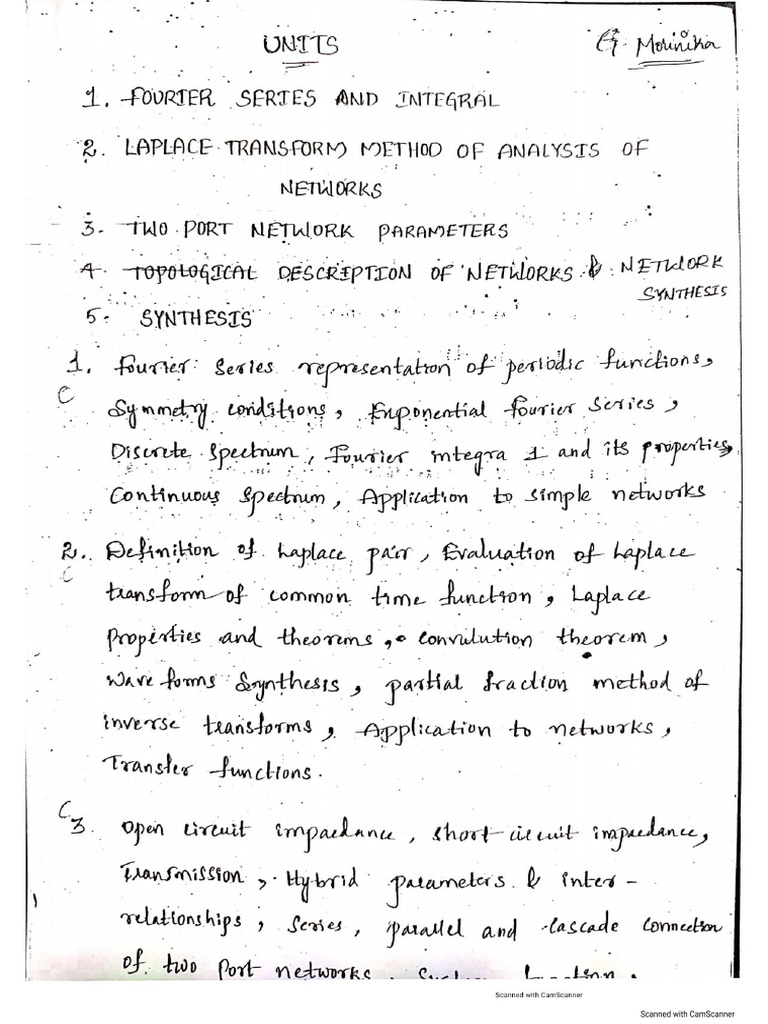 UNITS
G. Mounika
1. FOURIER SERIES AND INTEGRAL
2. LAPLACE TRANSFORM METHOD OF ANALYSIS OF
NETWORKS
3. TWO PORT NETWORK PARAMETERS
4. TOPOLOGICAL DESCRIPTION OF NETWORKS & NETWORK
SYNTHESIS
5. SYNTHESIS
1. Fourier Series representation of periodic functions,
C
Symmetry conditions, Exponential fourier series,
Discrete spectrum, Fourier integra l and its properties,
Continuous spectrum, Application to simple networks
2. Definition of Laplace pair, Evaluation of Laplace
C
transform of common time function, Laplace
properties and theorems, convulution theorem,
wave forms Synthesis, partial fraction method of
inverse transforms, Application to networks,
Transfer functions.
C
3. Open circuit impaedance, short circuit impaedance,
Transmission, Hybrid parameters & inter-
relationships, series, parallel and cascade connection
of two port networks,
Scanned with CamScanner
Scanned with CamScanner